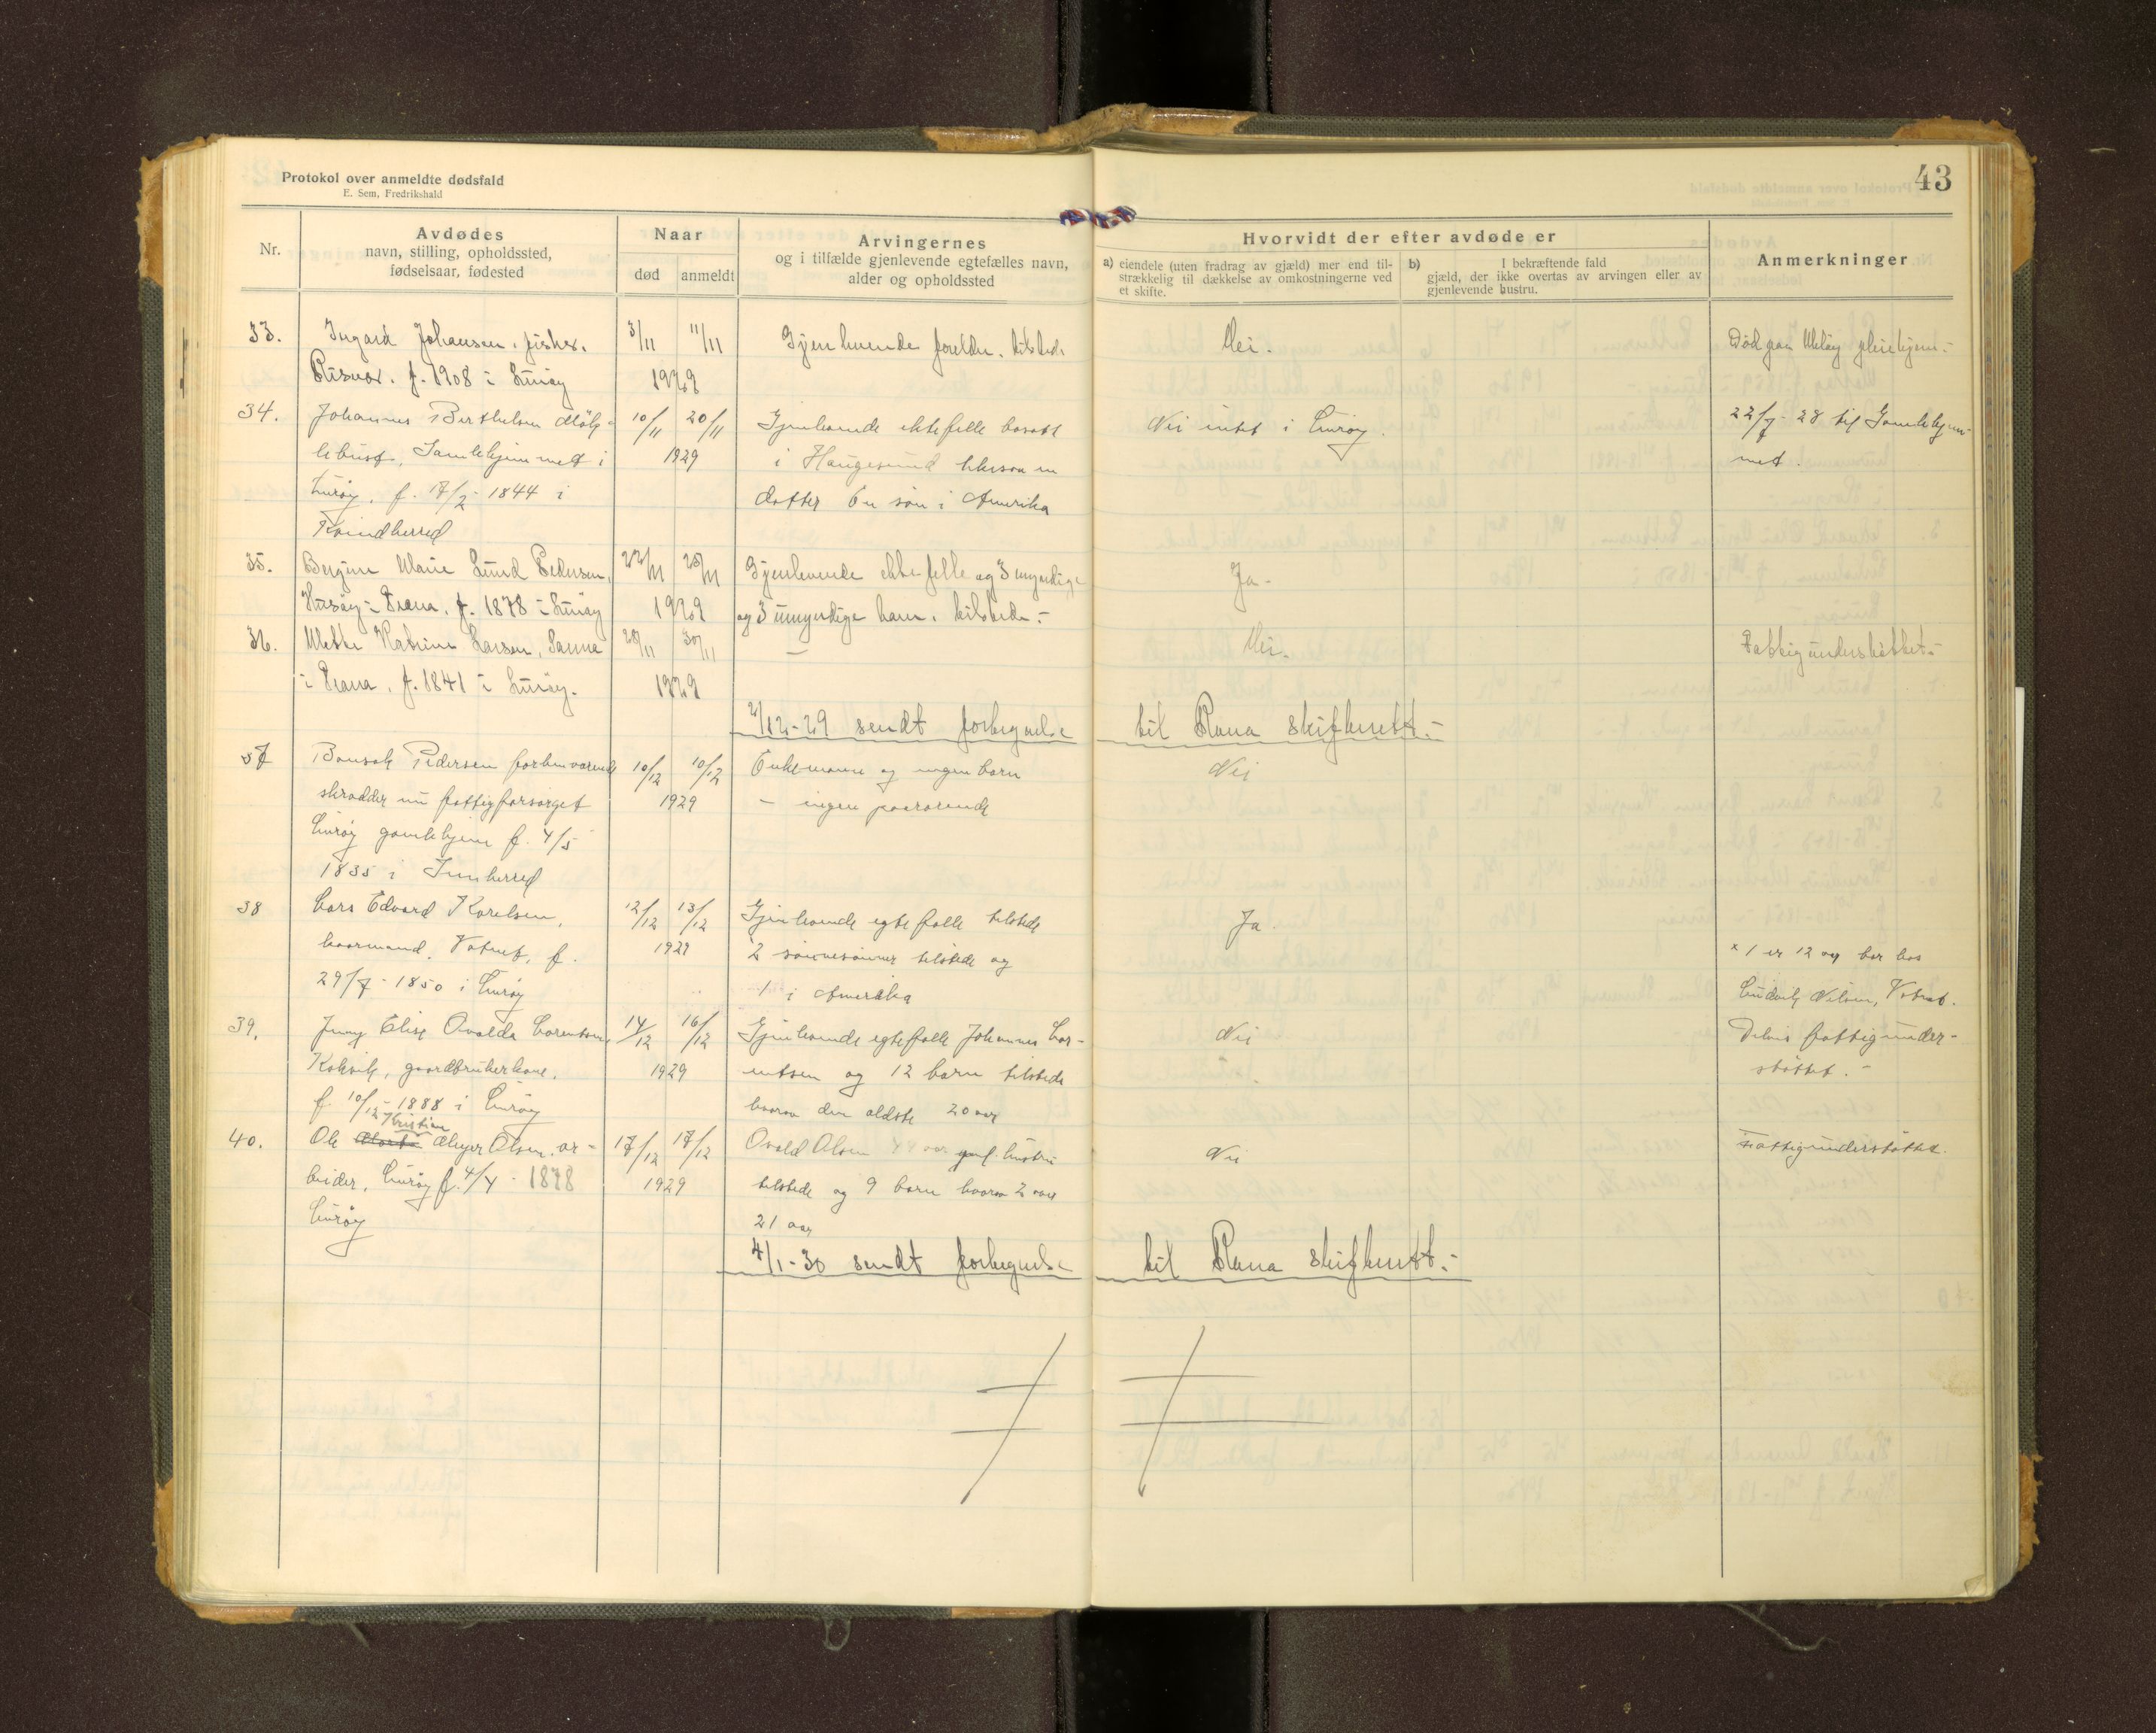 Protokol over anmeldte dødsfald
E. Sem, Fredrikshald
43
Nr.
Avdødes
navn, stilling, opholdssted,
fødselsaar, fødested
Naar
død
anmeldt
Arvingernes
og i tilfælde gjenlevende egtefælles navn,
alder og opholdssted
Hvorvidt der efter avdøde er
a) eiendele (uten fradrag av gjæld) mer end til-
strækkelig til dækkelse av omkostningerne ved
et skifte.
b) I bekræftende fald
gjæld, der ikke overtas av arvingen eller av
gjenlevende hustru.
Anmerkninger
33. Ingard Johansen, fisker. 3/11 11/11 Gjenlevende foreldre. tilstede Nei. Død paa pleiehjem.-
f. 1908 i Lurøy 1929
34. Johannes Berthelsen 10/11 20/11 Gjenlevende ektefelle bosatt Nei intet i Lurøy. 22/7-28 til Gamlehjem-
Gamlehjemmet i 1929 i Haugesund likesaa en met.
Lurøy, f. 17/2-1844 i datter En søn i Amerika
Kvindherred
35. Bergine Marie Lund Pedersen, 22/11 28/11 Gjenlevende ektefelle og 3 myndige Ja-
Husøy i Træna, f. 1878 i Lurøy 1929 og 3 umyndige barn. tilstede.-
36. Mette Katrine Larsen, Sanna 28/11 30/11 — Nei. Fattigunderstøttet.-
i Træna, f. 1841 i Lurøy. 1929
2/12-29 sendt fortegnelse til Rana skifterett.-
37 Pedersen forhenværende 10/12 10/12 Enkemann og ingen barn Nei
skrædder nu fattigforsørget 1929 - ingen paarørende
Lurøy gamlehjem f. 4/5
1835 i Innherred
38 Lars Edvard Karelsen, 12/12 13/12 Gjenlevende egtefælle tilstede Ja.
kaarmand, f. 1929 2 sønnesønner tilstede og × 1 er 12 aar bor hos
29/7-1850 i Lurøy 1 i Amerika Ludvik Nilsen,
39. Jenny Elise Ovalda Lorentsen, 14/12 16/12 Gjenlevende egtefælle Johannes Lor- Nei Delvis fattigunder-
Kokvik, gaardbrukerkone. 1929 entsen og 12 barn tilstede støttet.-
f. 10/12-1888 i Lurøy hvorav den ældste 20 aar
Kristian
40. Ole Meyer Olsen, ar- 17/12 17/12 Ovald Olsen 49 aar gjenl. hustru Nei Fattigunderstøttet.
beider, Lurøy f. 4/4-1878 1929 tilstede og 9 barn hvorav 2 over
Lurøy 21 aar
4/1-30 sendt fortegnelse til Rana skifterett.-